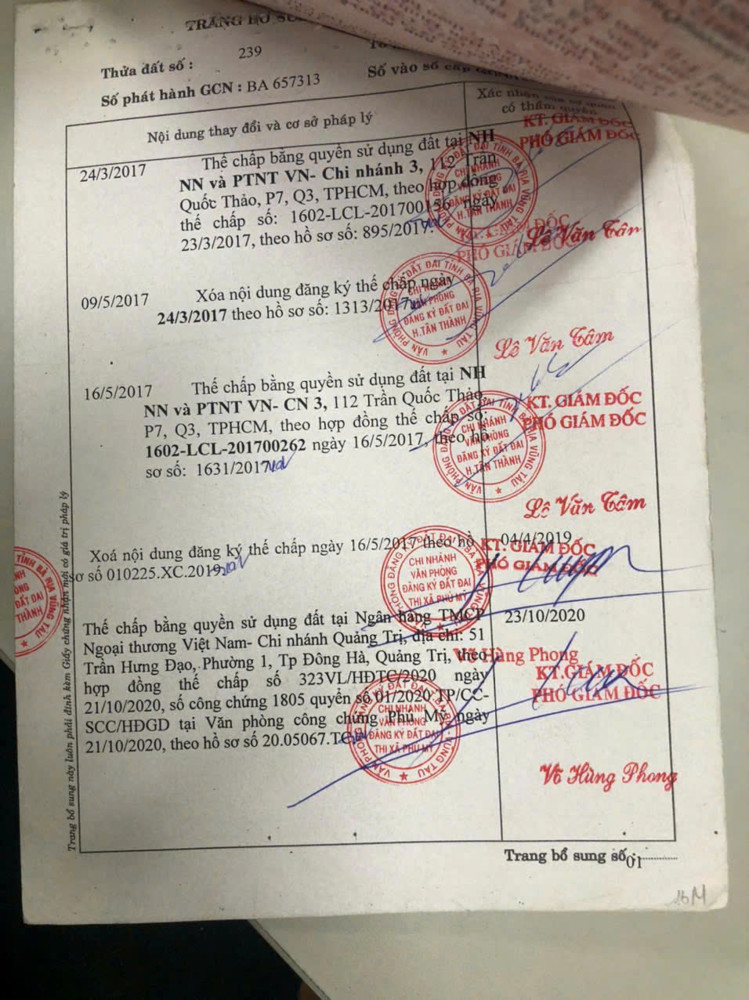 TRANG BỔ
Thửa đất số : 239
Số phát hành GCN : BA 657313
Số vào sổ cấp
Nội dung thay đổi và cơ sở pháp lý
Xác nhận
có thẩm quyền
24/3/2017 Thế chấp bằng quyền sử dụng đất tại NH
NN và PTNT VN- Chi nhánh 3, 112 Trần
Quốc Thảo, P7, Q3, TPHCM, theo hợp đồng
thế chấp số: 1602-LCL-201700156 ngày
23/3/2017, theo hồ sơ số: 895/2017.
KT. GIÁM ĐỐC
PHÓ GIÁM ĐỐC
Lê Văn Tâm
CHI NHÁNH
VĂN PHÒNG
ĐĂNG KÝ ĐẤT ĐAI
H.TÂN THÀNH
09/5/2017 Xóa nội dung đăng ký thế chấp ngày
24/3/2017 theo hồ sơ số: 1313/2017
KT. GIÁM ĐỐC
PHÓ GIÁM ĐỐC
Lê Văn Tâm
VĂN PHÒNG ĐĂNG KÝ ĐẤT ĐAI TỈNH BÀ RỊA VŨNG TÀU
CHI NHÁNH
VĂN PHÒNG
ĐĂNG KÝ ĐẤT ĐAI
H.TÂN THÀNH
16/5/2017 Thế chấp bằng quyền sử dụng đất tại NH
NN và PTNT VN- CN 3, 112 Trần Quốc Thảo,
P7, Q3, TPHCM, theo hợp đồng thế chấp số:
1602-LCL-201700262 ngày 16/5/2017, theo hồ
sơ số: 1631/2017
KT. GIÁM ĐỐC
PHÓ GIÁM ĐỐC
Lê Văn Tâm
CHI NHÁNH
VĂN PHÒNG
ĐĂNG KÝ ĐẤT ĐAI
H.TÂN THÀNH
Xoá nội dung đăng ký thế chấp ngày 16/5/2017 theo hồ
sơ số 010225.XC.2019
04/4/2019
KT. GIÁM ĐỐC
PHÓ GIÁM ĐỐC
Võ Hùng Phong
CHI NHÁNH
VĂN PHÒNG
ĐĂNG KÝ ĐẤT ĐAI
THỊ XÃ PHÚ MỸ
Thế chấp bằng quyền sử dụng đất tại Ngân hàng TMCP
Ngoại thương Việt Nam- Chi nhánh Quảng Trị, địa chỉ: 51
Trần Hưng Đạo, Phường 1, Tp Đông Hà, Quảng Trị, theo
hợp đồng thế chấp số 323VL/HĐTC/2020 ngày
21/10/2020, số công chứng 1805 quyển số 01/2020 TP/CC-
SCC/HĐGD tại Văn phòng công chứng Phú Mỹ ngày
21/10/2020, theo hồ sơ số 20.05067.TC
23/10/2020
KT.GIÁM ĐỐC
PHÓ GIÁM ĐỐC
Võ Hùng Phong
CHI NHÁNH
VĂN PHÒNG
ĐĂNG KÝ ĐẤT ĐAI
THỊ XÃ PHÚ MỸ
Trang bổ sung này luôn phải đính kèm Giấy chứng nhận mới có giá trị pháp lý
Trang bổ sung số: 01